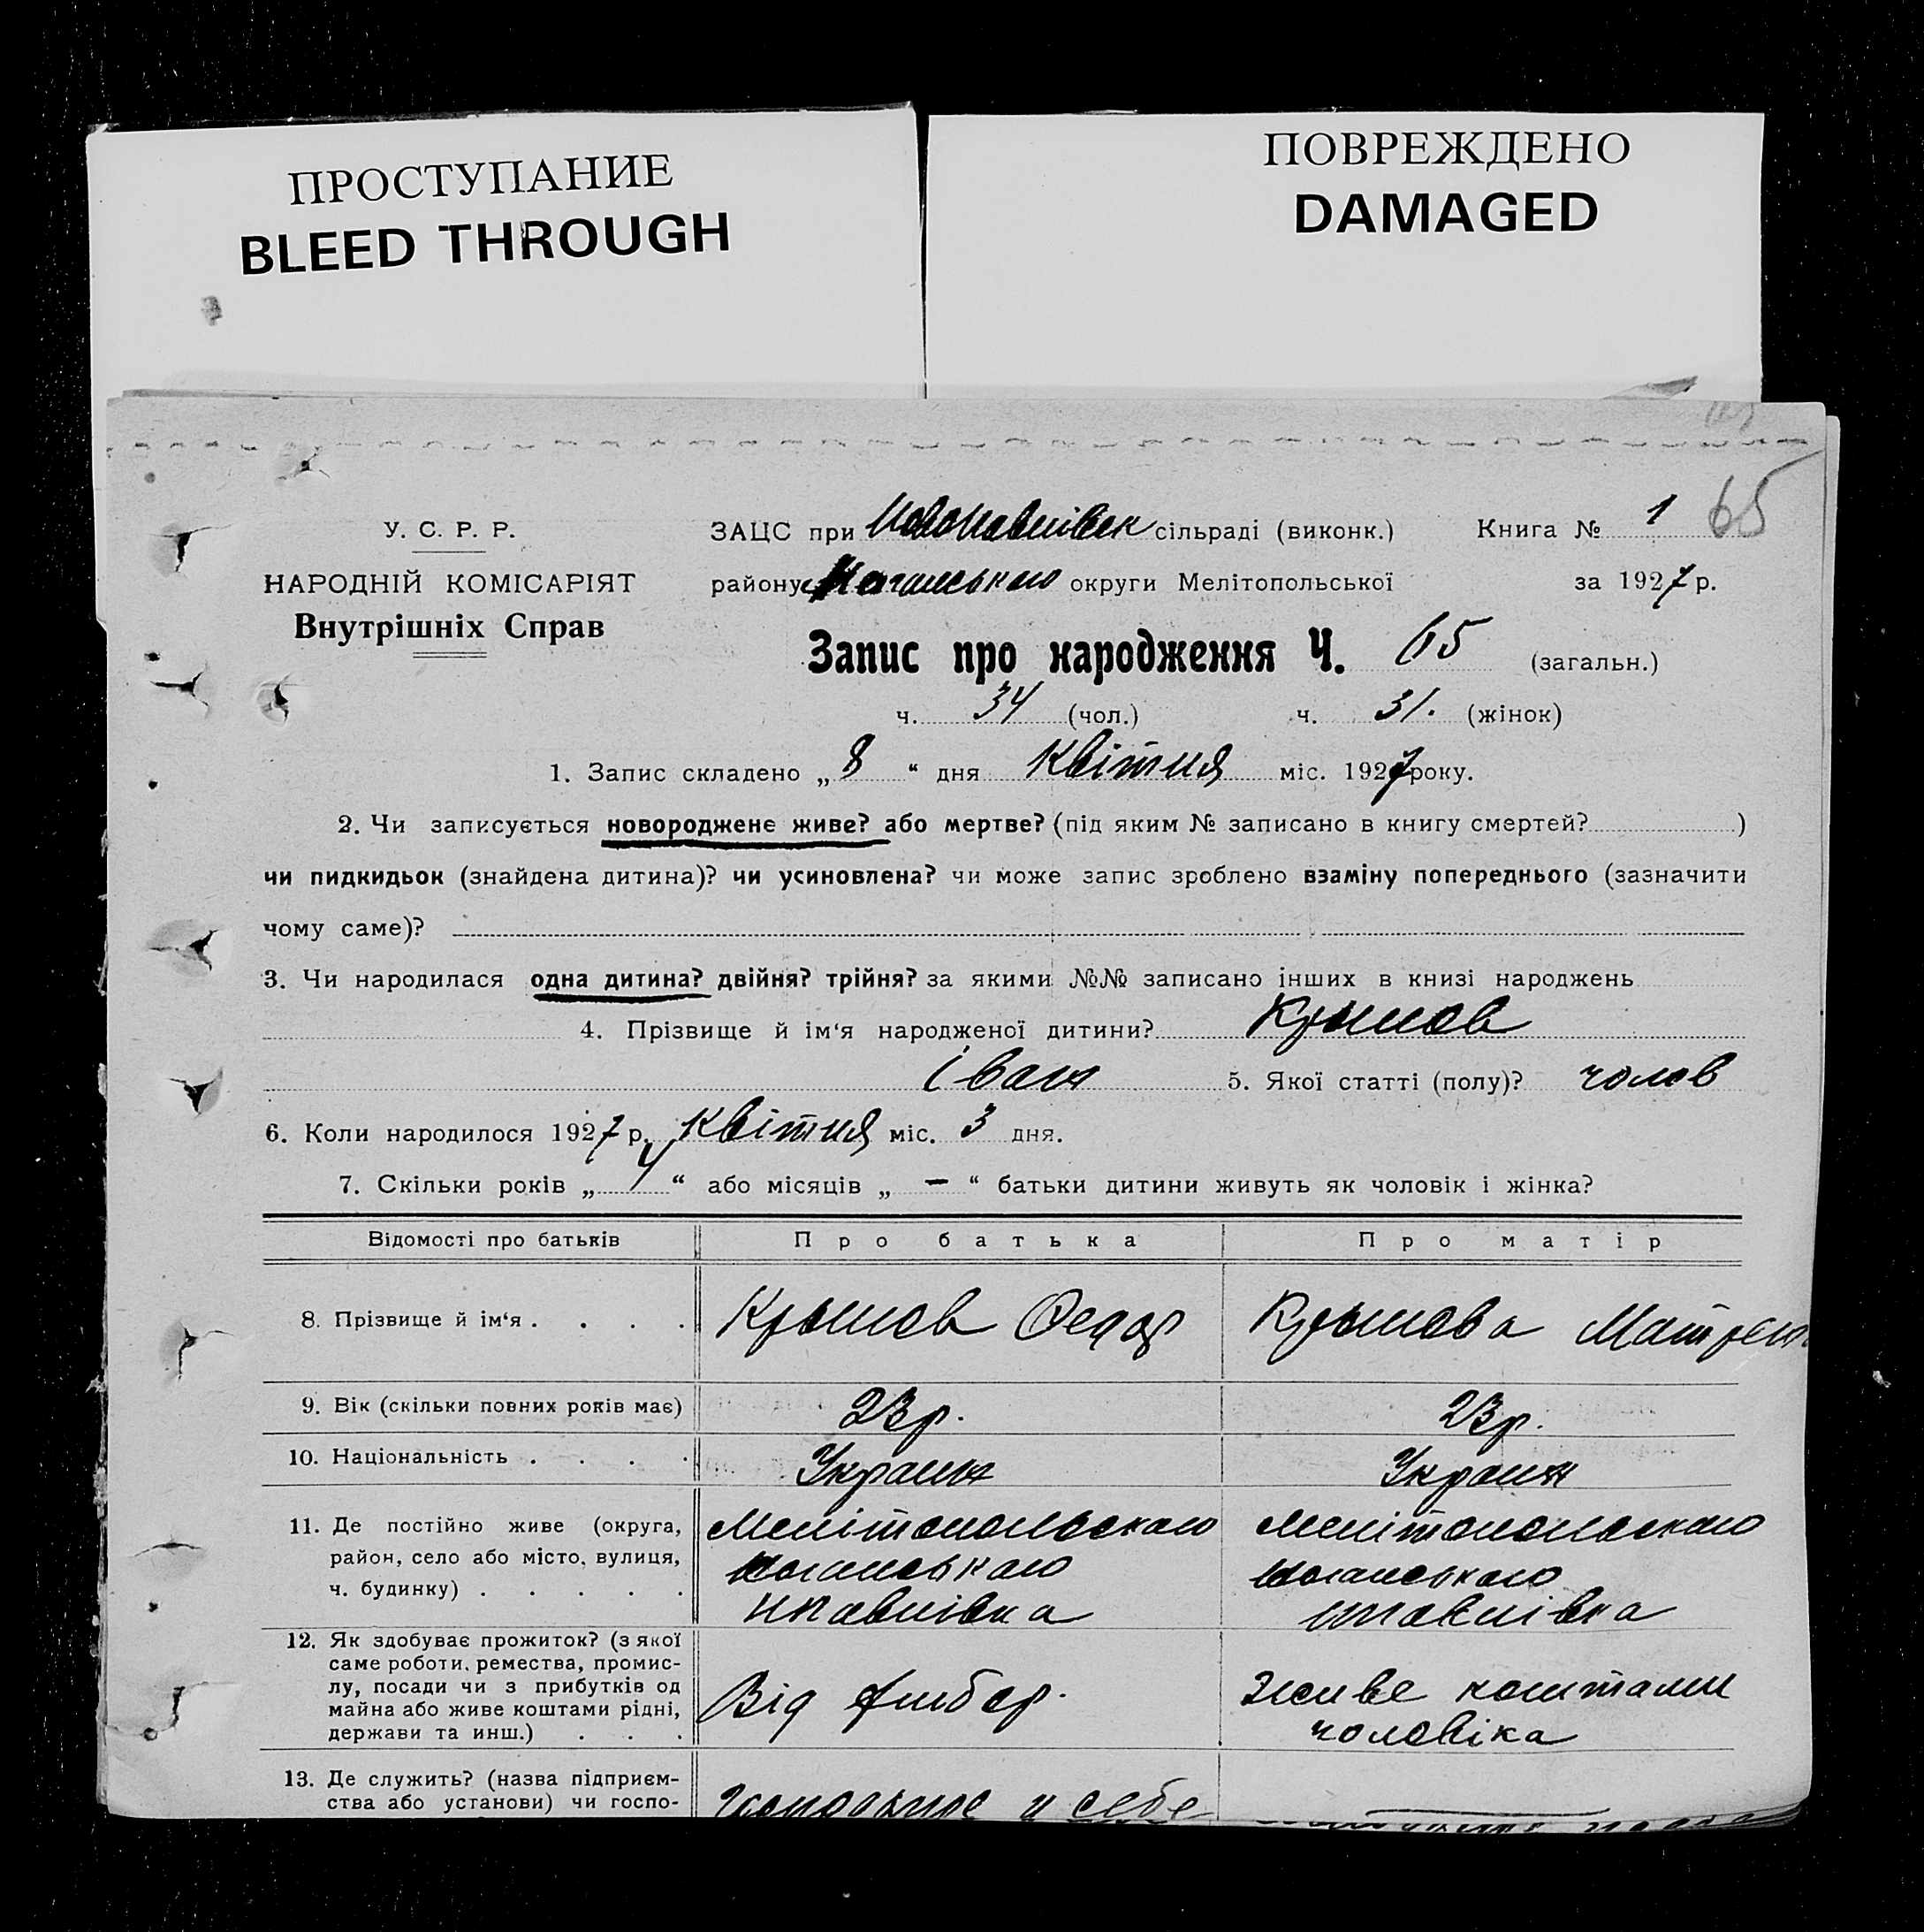 ПРОСТУПАНИЕ
BLEED THROUGH
ПОВРЕЖДЕНО
DAMAGED
65
У. С. Р. Р.
НАРОДНІЙ КОМІСАРІЯТ
Внутрішніх Справ
ЗАЦС при Новопавлівск сільраді (виконк.) Книга № 1
району Ногайського округи Мелітопольської за 1927 р.
Запис про народження Ч. 65 (загальн.)
ч. 34 (чол.) ч. 31. (жінок)
1. Запис складено „ 8 “ дня Квітня міс. 1927 року.
2. Чи записується новороджене живе? або мертве? (під яким № записано в книгу смертей? )
чи пидкидьок (знайдена дитина)? чи усиновлена? чи може запис зроблено взаміну попереднього (зазначити
чому саме)?
3. Чи народилася одна дитина? двійня? трійня? за якими №№ записано інших в книзі народжень
4. Прізвище й ім‘я народженої дитини? Крымов
Іван 5. Якої статті (полу)? чолов
6. Коли народилося 1927 р. Квітня міс. 3 дня.
7. Скільки років „ 4 “ або місяців „ — “ батьки дитини живуть як чоловік і жінка?
Відомості про батьків Про батька Про матір
8. Прізвище й ім‘я . . . . Крымов Федор Крымова Матрен
9. Вік (скільки повних років має) 23 р. 23 р.
10. Національність . . . . Украин Украин
11. Де постійно живе (округа,
район, село або місто, вулиця,
ч. будинку) . . . . .
Мелітопольского
Ногайського
Нпавлівка
Мелітопольского
Ногайського
Нпавлівка
12. Як здобуває прожиток? (з якої
саме роботи, ремества, промис-
лу, посади чи з прибутків од
майна або живе коштами рідні,
держави та инш.) . . .
Від хлібор.
Живе коштами
чоловіка
13. Де служить? (назва підприєм-
ства або установи) чи госпо-
у себе